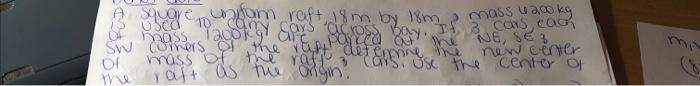 A square uniform raft, 18m by 18m, mass 6200kg
is used to cars across bay. If 3 cars, each
of mass 1200kg are parked at the NE, SE &
SW corners of the raft, determine the new center
of mass of the raft & cars. Use the center of
the raft as the origin.
m
(8